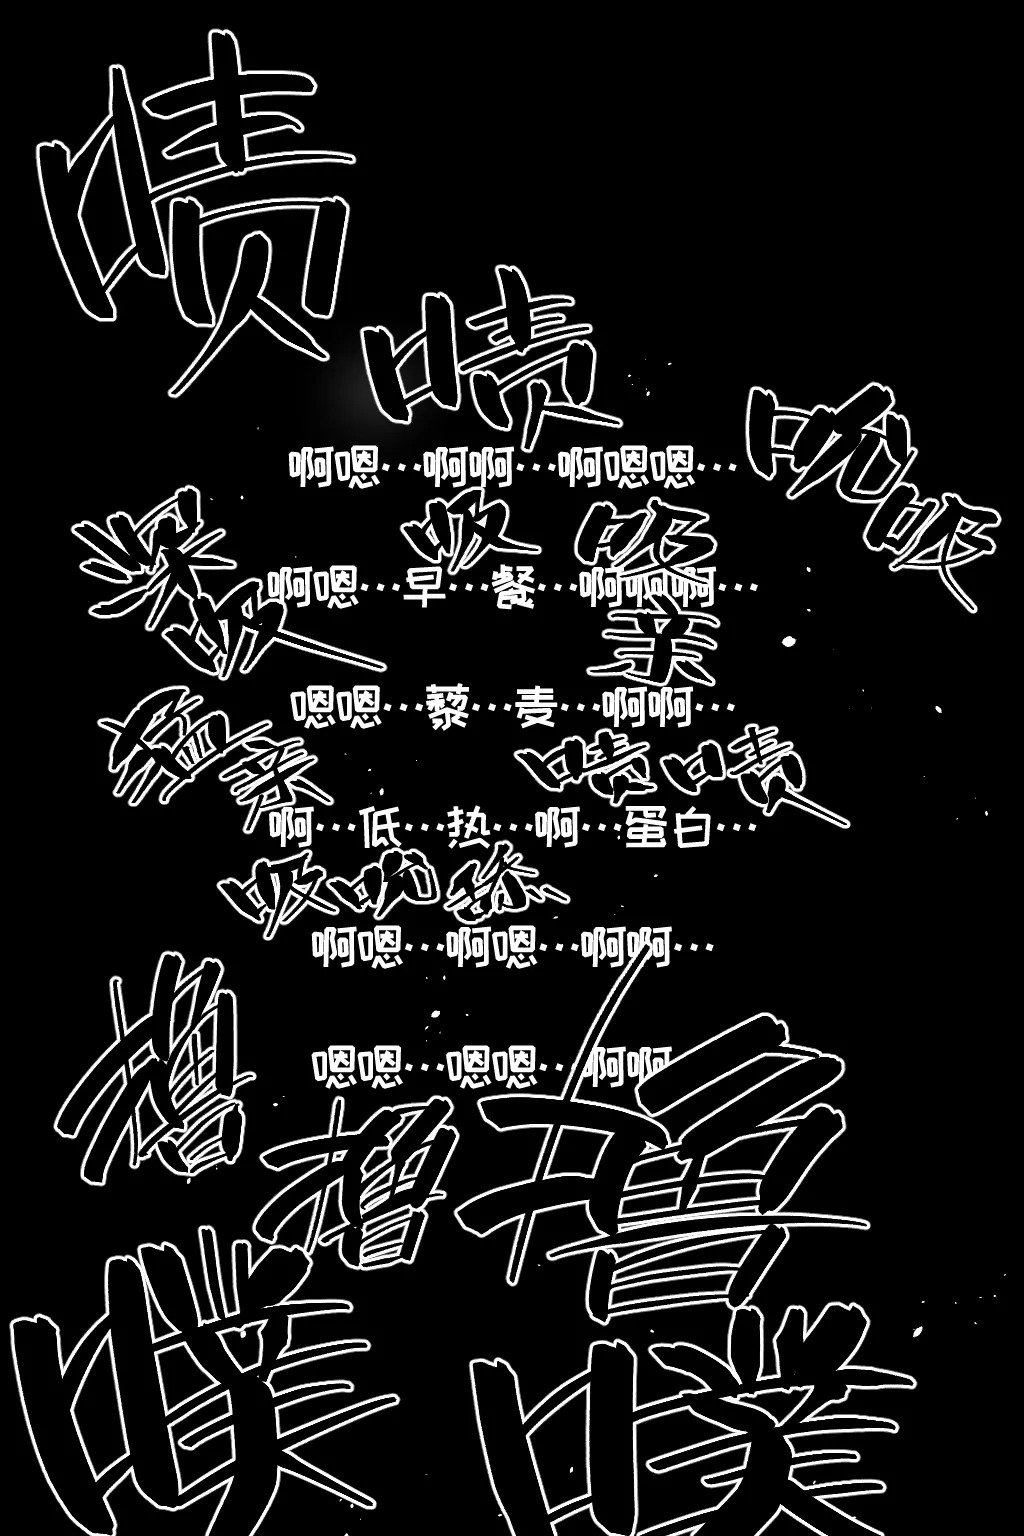 啧
啧
吮
吸
啊嗯…啊啊…啊嗯嗯…
吸
吸
啊嗯…早…餐…啊啊啊…
深
吸
亲
嗯嗯…藜…麦…啊啊…
亲
啧啧
啊…低…热…啊…蛋白…
吸吮舔
啊嗯…啊嗯…啊啊…
嗯嗯…嗯嗯…啊啊
撸
撸
撸
噗
噗